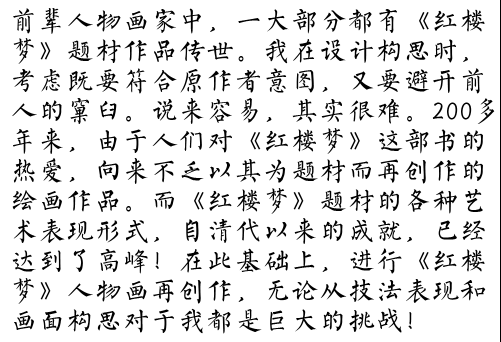 前辈人物画家中，一大部分都有《红楼
梦》题材作品传世。我在设计构思时，
考虑既要符合原作者意图，又要避开前
人的窠臼。说来容易，其实很难。200多
年来，由于人们对《红楼梦》这部书的
热爱，向来不乏以其为题材而再创作的
绘画作品。而《红楼梦》题材的各种艺
术表现形式，自清代以来的成就，已经
达到了高峰！在此基础上，进行《红楼
梦》人物画再创作，无论从技法表现和
画面构思对于我都是巨大的挑战！